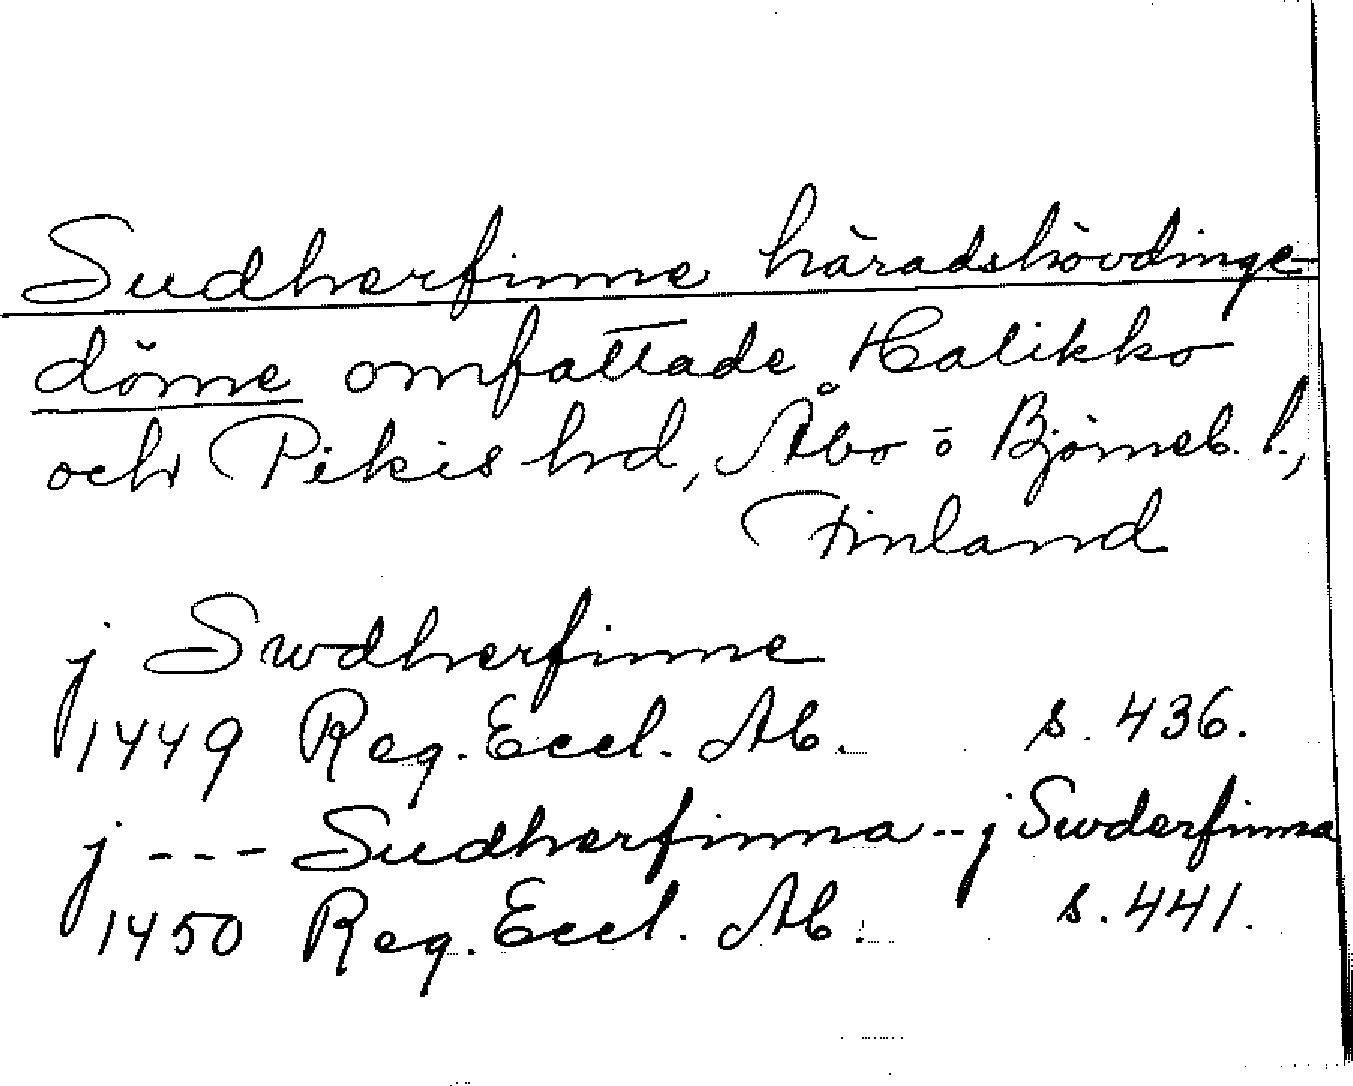 Sudherfinne häradshövdinge-
döme omfattade Halikko
och Pikis hrd, Åbo o Björneb. l.,
Finland
j Swdherfinne
1449 Reg. Eccl. Ab. s. 436.
j --- Sudherfinna -- j Swderfinna
1450 Reg. Eccl. Ab. s. 441.